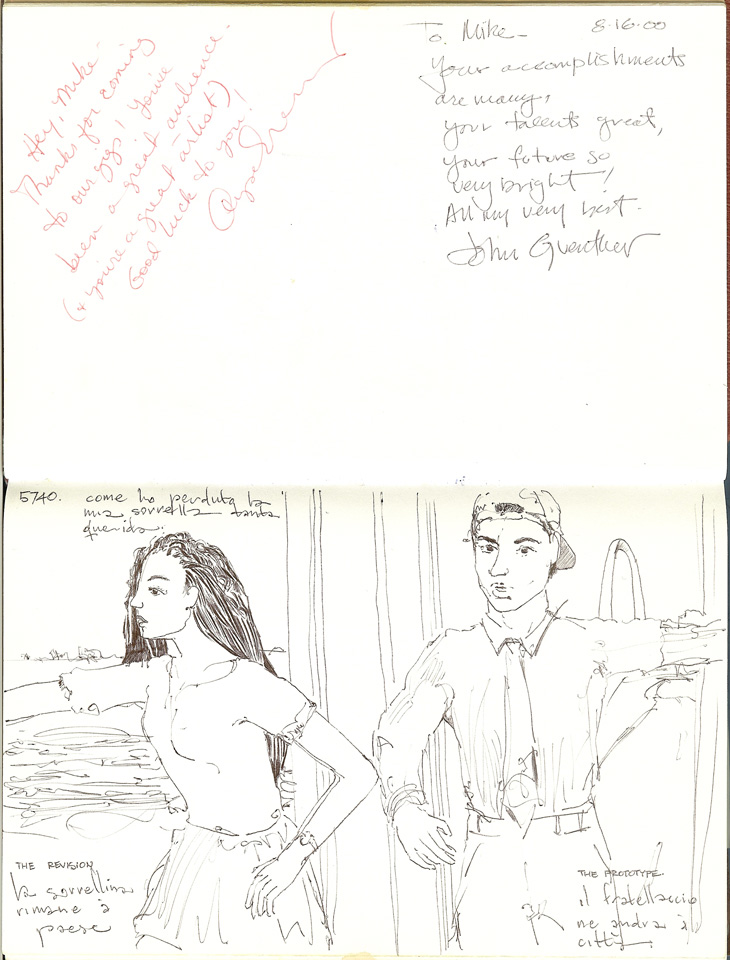 Hey, Mike -
Thanks for coming
to our gigs! You've
been a great audience.
(+ you're a great artist)
Good luck to you!
To Mike - 8·16·00
Your accomplishments
are many,
your talents great,
your future so
very bright!
All my very best.
John Guenther
5740. come ho perduta la
mia sorrella tanta
querida.
THE REVISION
la sorrellina
rimane à
paese
THE PROTOTYPE.
il fratellaccio
ne andra à
città.